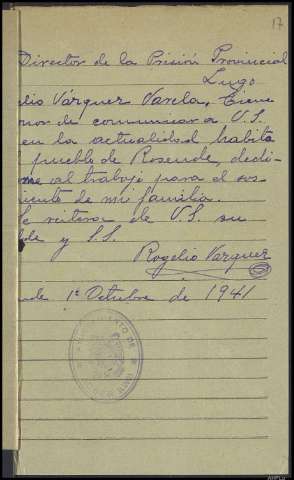 17
Director de la Prisión Provincial
Lugo
elio Várquez Varela, tiene
nor de comunicar a V.S.
en la actualidad habita
pueblo de Rosende, dedi-
me al trabajo para el sos
iento de mi familia.
e reitera de V.S. su
de y S.S.
Rogelio Varquez
de 1º Octubre de 1941